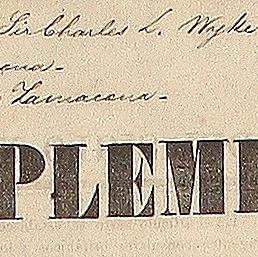 Sir Charles L. Wyke
Zamacona-
PLEME